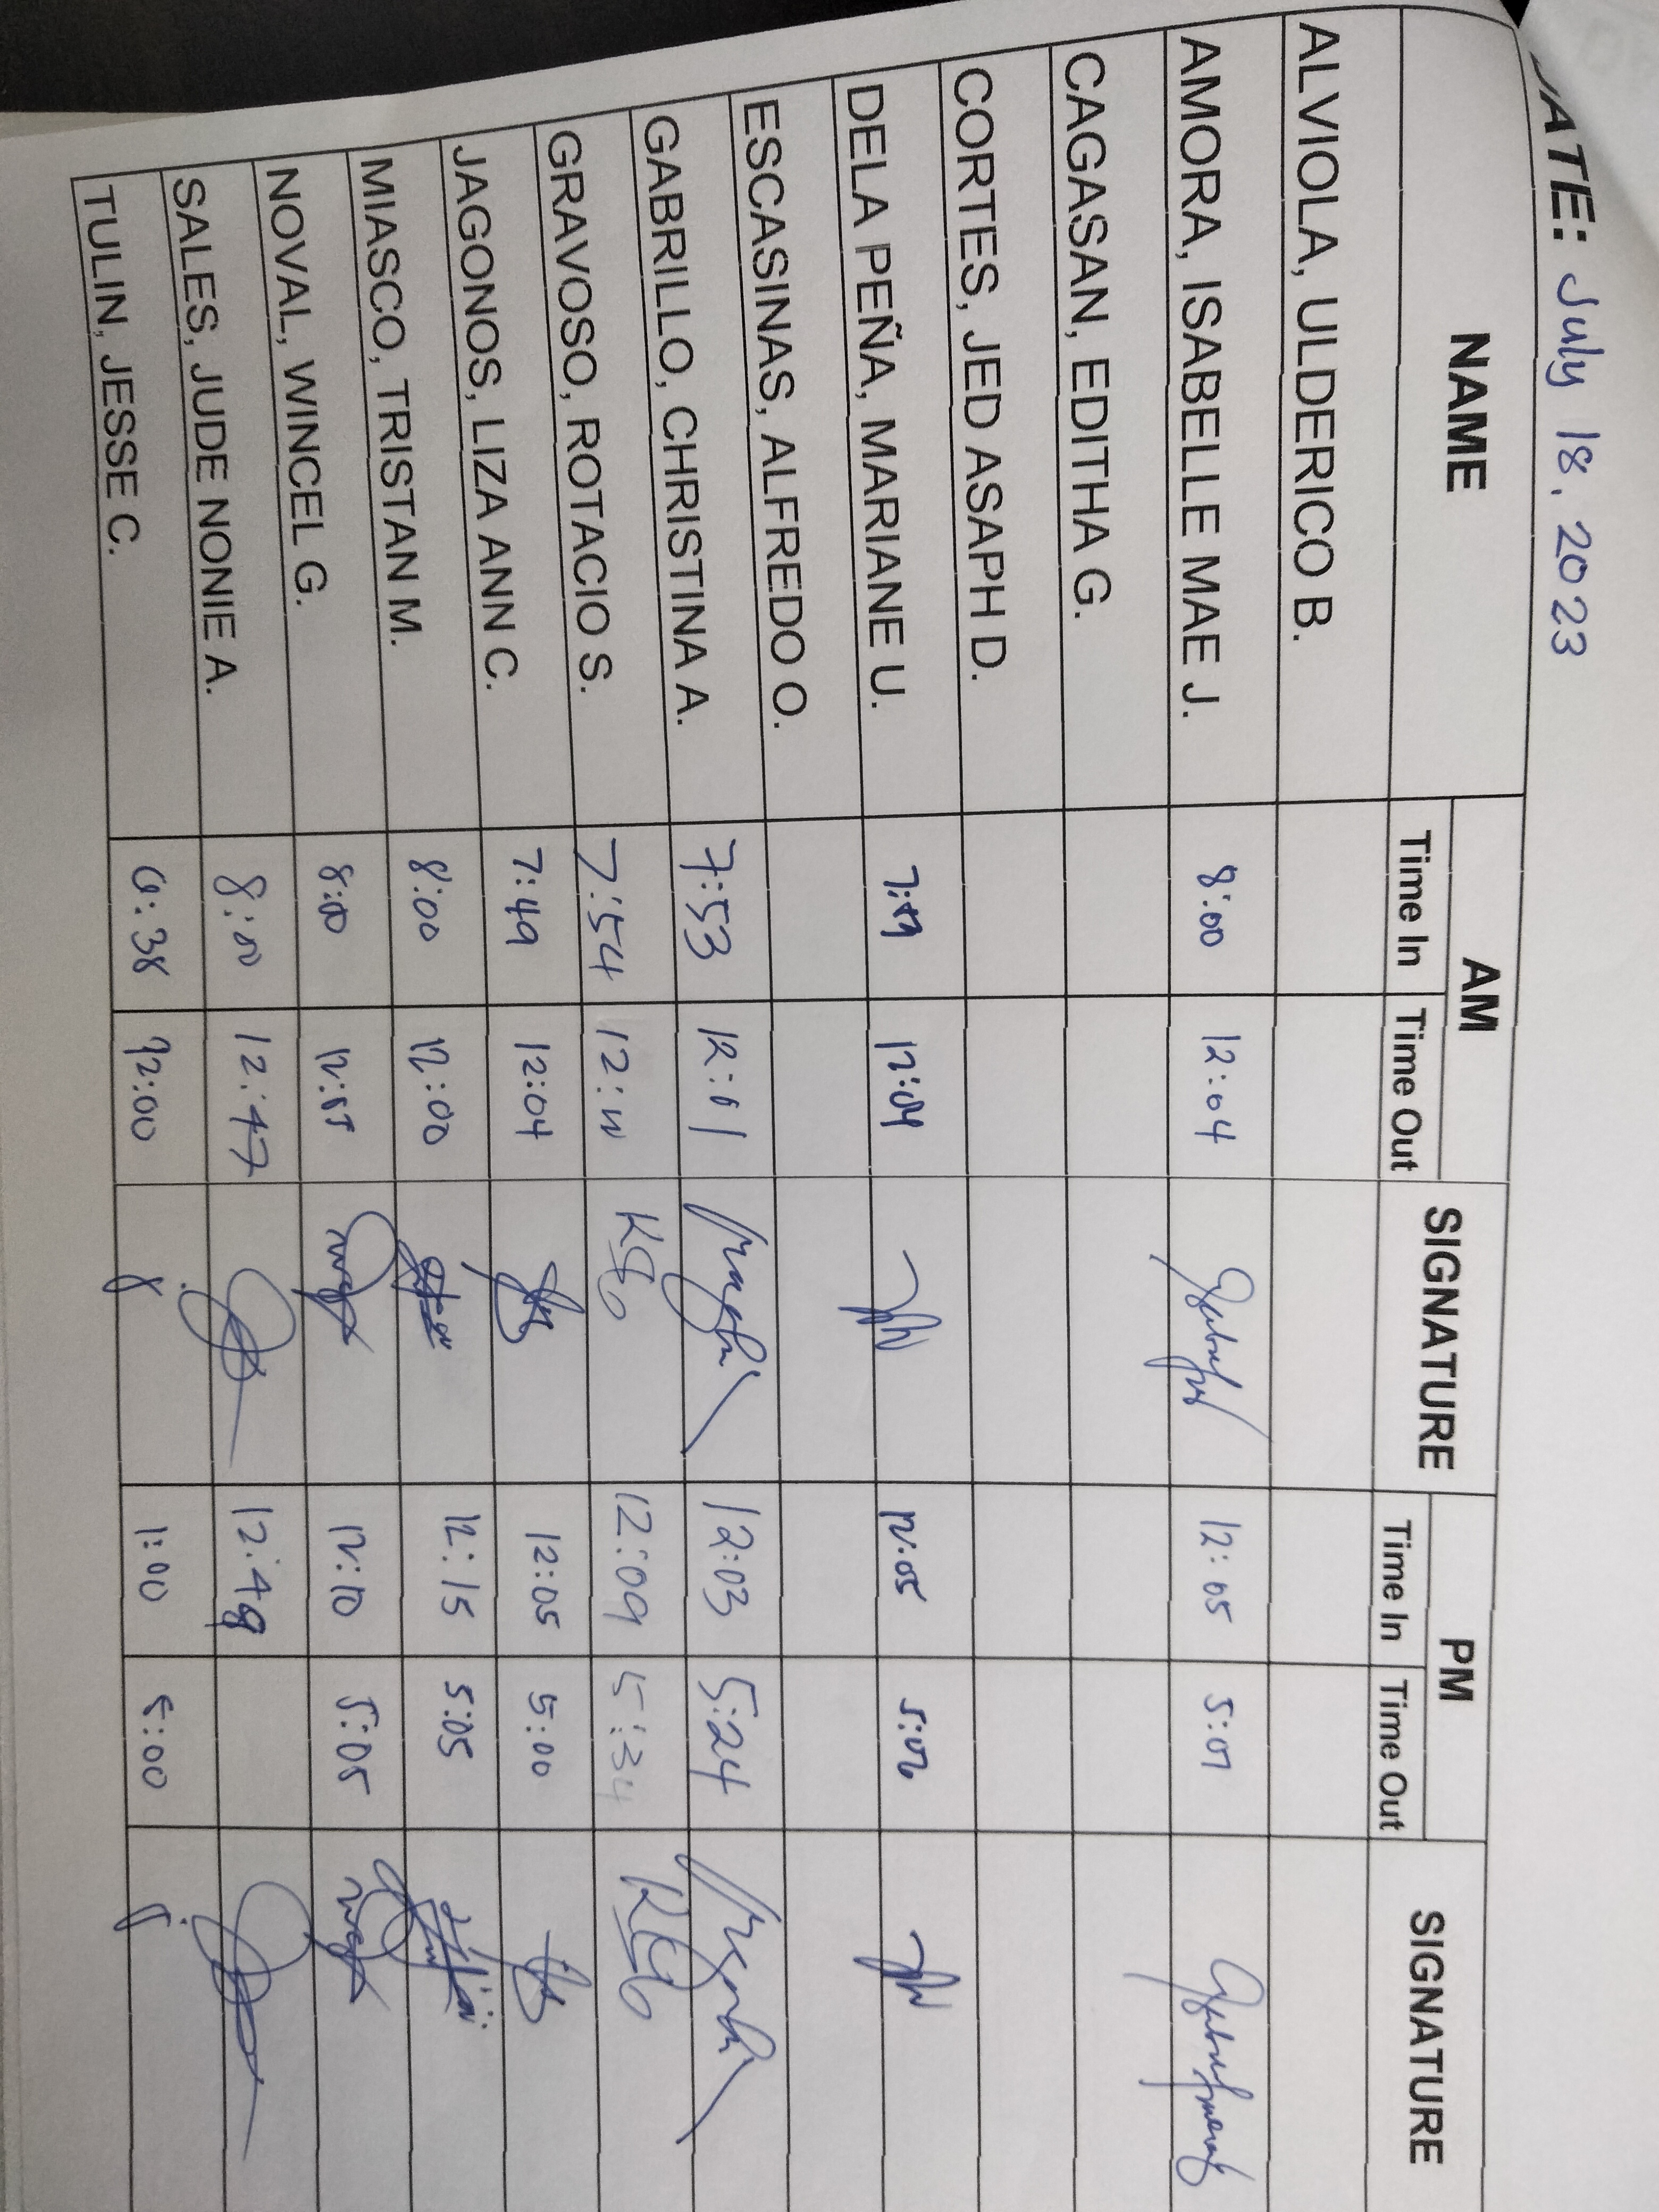 DATE: July 18, 2023
NAME AM SIGNATURE PM SIGNATURE
Time In Time Out Time In Time Out
ALVIOLA, ULDERICO B.
AMORA, ISABELLE MAE J. 8:00 12:04 12:05 5:07
CAGASAN, EDITHA G.
CORTES, JED ASAPH D.
DELA PEÑA, MARIANE U. 12:04 12:05
ESCASINAS, ALFREDO O.
GABRILLO, CHRISTINA A. 7:53 12:01 12:03 5:24
GRAVOSO, ROTACIO S. 7:54 12:09 5:34
JAGONOS, LIZA ANN C. 7:49 12:04 12:05 5:00
MIASCO, TRISTAN M. 8:00 12:00 12:15 5:05
NOVAL, WINCEL G. 8:00 12:10 5:05
SALES, JUDE NONIE A. 8:00 12:47 12:49
TULIN, JESSE C. 6:38 12:00 1:00 5:00